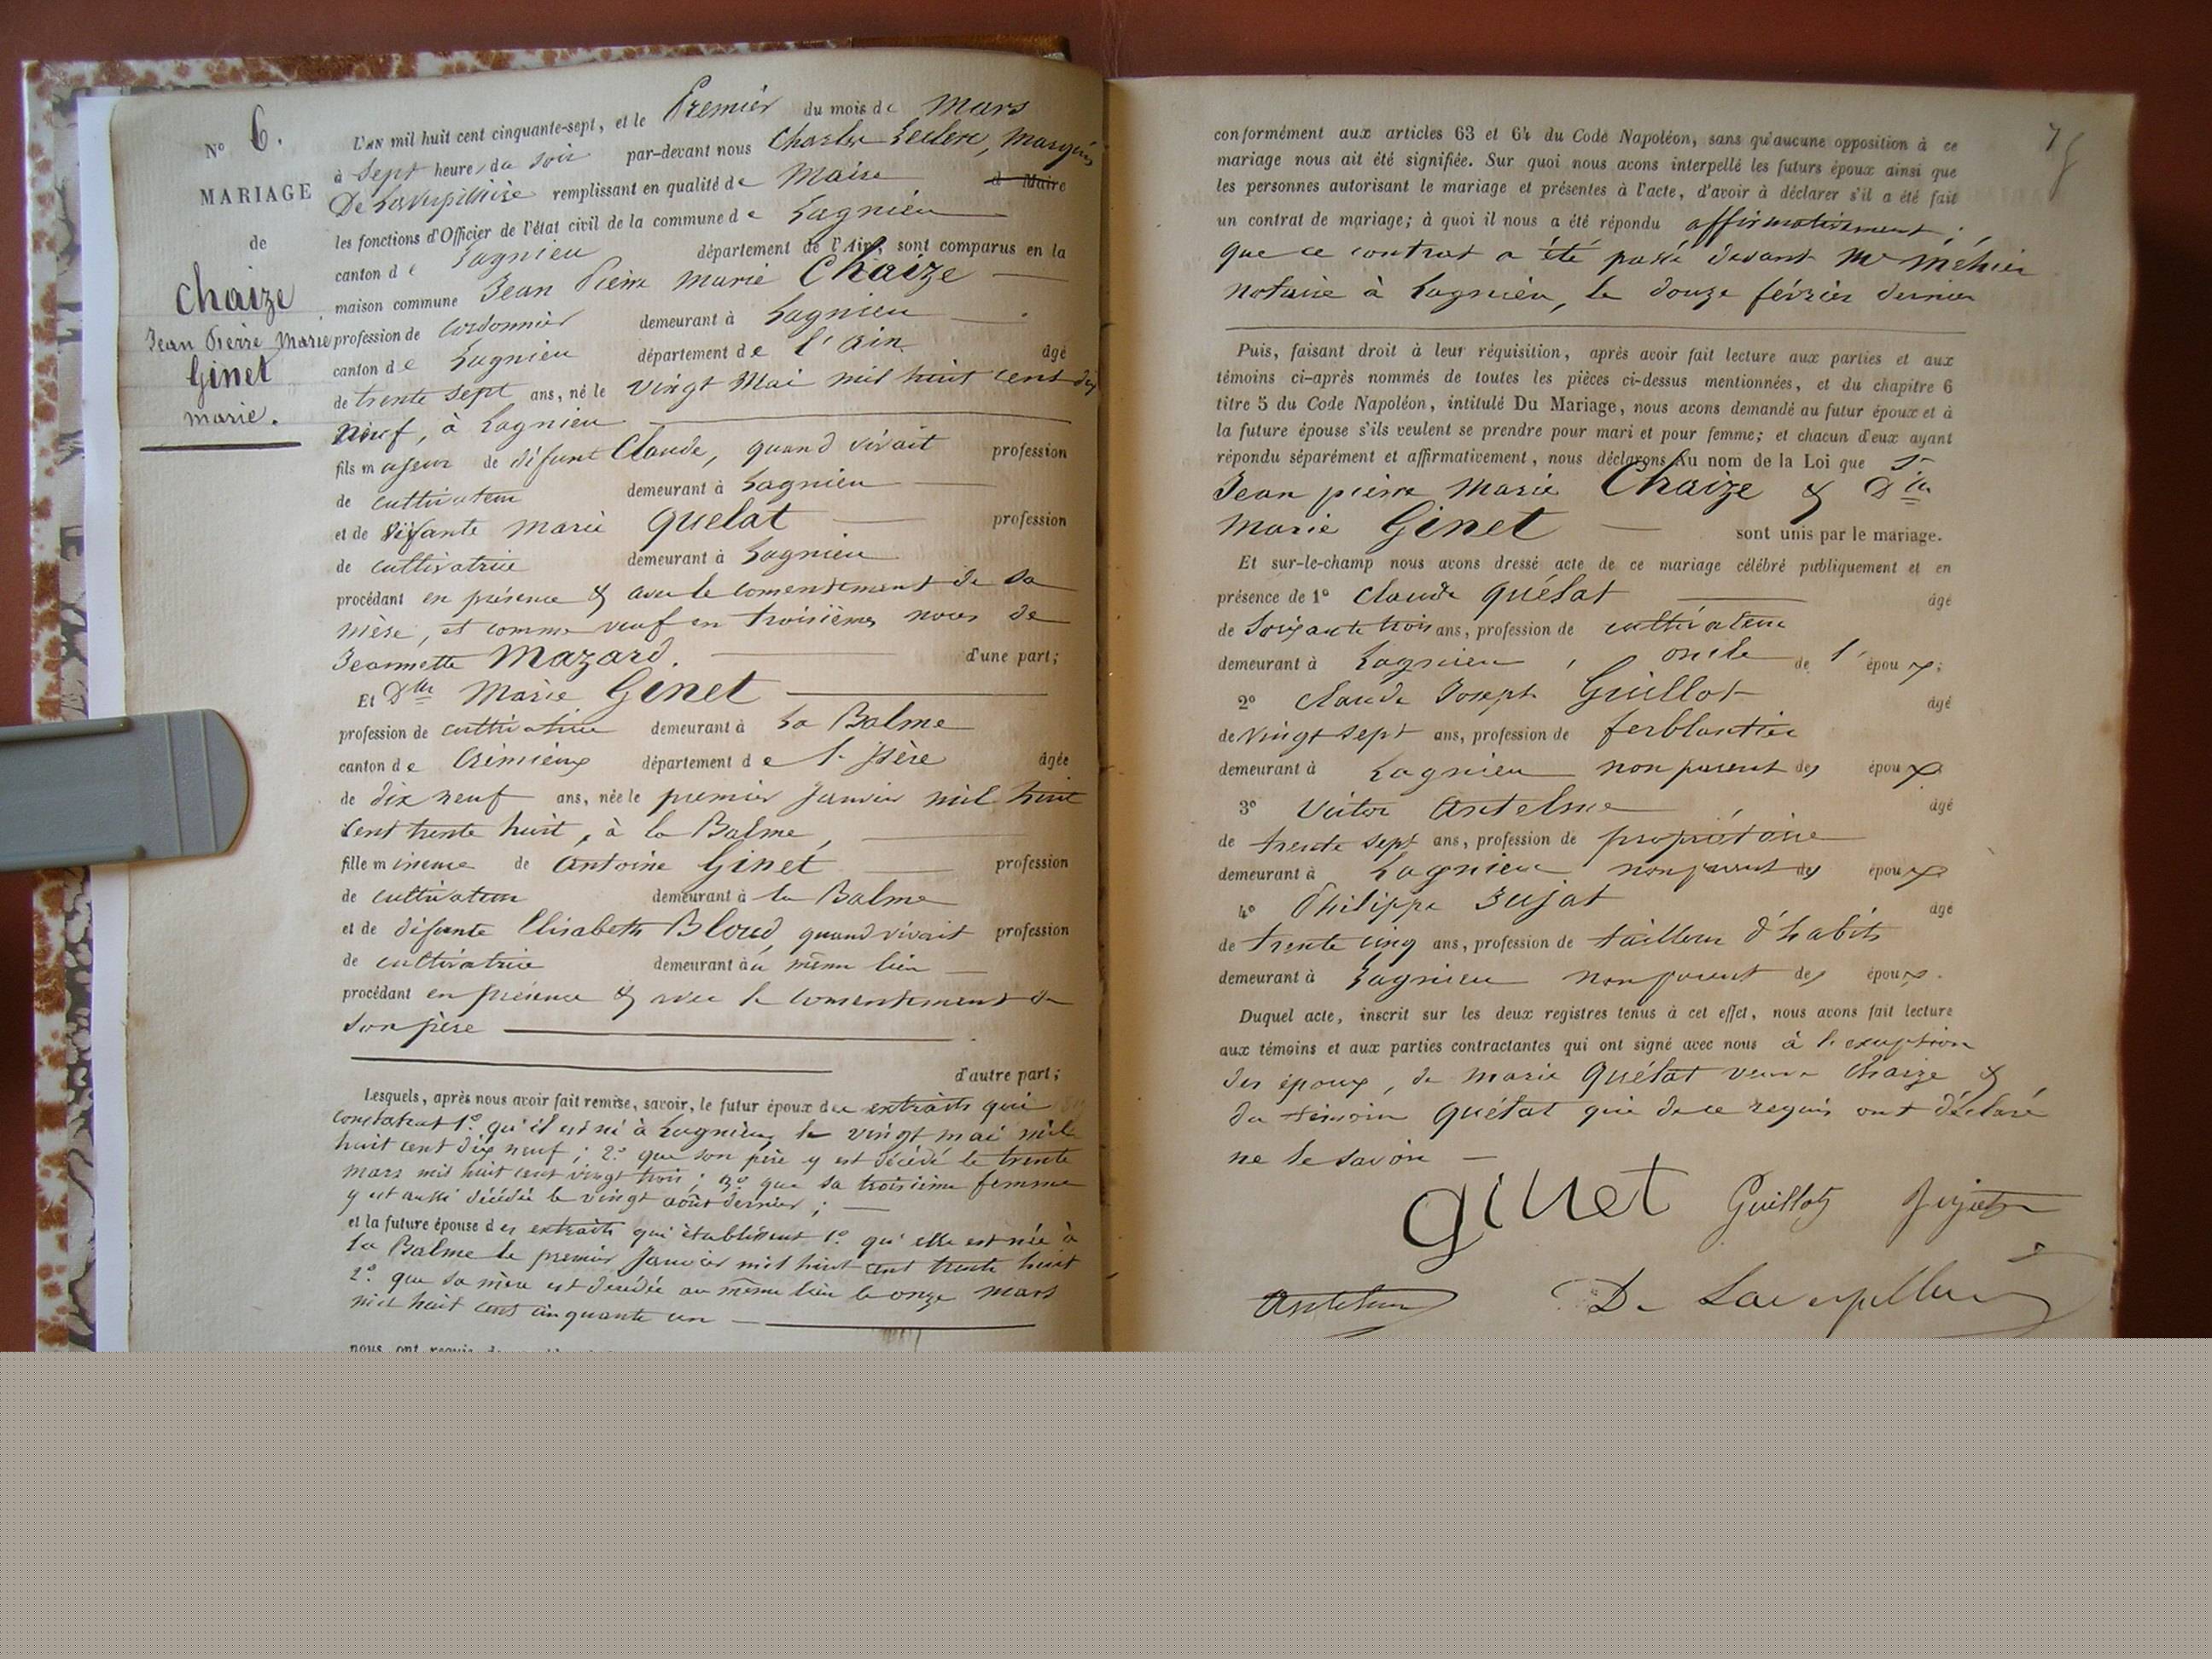 N° 6.
MARIAGE
de
Chaize
Jean Pierre Marie
Ginet
marie.
L'AN mil huit cent cinquante-sept, et le Premier du mois de Mars
à Sept heures du Soir par-devant nous Charles Leclerc, Marquis
De Laverpillière remplissant en qualité de Maire d Maire
les fonctions d'Officier de l'état civil de la commune de Lagnieu
canton de Lagnieu département de l'Ain, sont comparus en la
maison commune Jean Pierre Marie Chaize
profession de Cordonnier demeurant à Lagnieu
canton de Lagnieu département de l'Ain âgé
de trente sept ans, né le vingt Mai mil huit cent dix
Neuf, à Lagnieu
fils majeur de défunt Claude, quand vivait profession
de cultivateur demeurant à Lagnieu
et de Marie Quélat profession
de cultivatrice demeurant à Lagnieu
procédant en présence & avec le consentement de sa
Mère, et comme veuf en troisièmes noces de
Jeannette Mazard. d'une part;
Et Dlle Marie Ginet
profession de cultivatrice demeurant à La Balme
canton de Crémieux département de l'Isère âgée
de dix neuf ans, née le premier Janvier mil huit
Cent trente huit, à la Balme,
fille mineure de Antoine Ginet profession
de cultivateur demeurant à la Balme
et de défunte Elisabeth Bloud, quand vivait profession
de cultivatrice demeurant au même lieu
procédant en présence & avec le consentement de
son père
d'autre part;
Lesquels, après nous avoir fait remise, savoir, le futur époux des extraits qui
constatent 1° qu'il est né à Lagnieu, le vingt mai mil
huit cent dix neuf; 2° que son père y est décédé le trente
Mars mil huit cent vingt trois; 3° que sa troisième femme
y est aussi décédée le vingt août dernier;
et la future épouse des extraits qui établissent 1° qu'elle est née à
La Balme le premier Janvier mil huit cent trente huit
2° que sa mère est décédée au même lieu le onze mars
mil huit cent cinquante un
conformément aux articles 63 et 64 du Code Napoléon, sans qu'aucune opposition à ce
mariage nous ait été signifiée. Sur quoi nous avons interpellé les futurs époux ainsi que
les personnes autorisant le mariage et présentes à l'acte, d'avoir à déclarer s'il a été fait
un contrat de mariage; à quoi il nous a été répondu affirmativement;
que ce contrat a été passé devant Me Méhier
notaire à Lagnieu, le douze février dernier
Puis, faisant droit à leur réquisition, après avoir fait lecture aux parties et aux
témoins ci-après nommés de toutes les pièces ci-dessus mentionnées, et du chapitre 6
titre 5 du Code Napoléon, intitulé Du Mariage, nous avons demandé au futur époux et à
la future épouse s'ils veulent se prendre pour mari et pour femme; et chacun d'eux ayant
répondu séparément et affirmativement, nous déclarons Au nom de la Loi que Sr
Jean pierre Marie Chaize & Dlle
Marie Ginet sont unis par le mariage.
Et sur-le-champ nous avons dressé acte de ce mariage célébré publiquement et en
présence de 1° Claude Quélat âgé
de Soixante trois ans, profession de cultivateur
demeurant à Lagnieu, oncle de l'époux;
2° Claude Joseph Guillot âgé
de vingt sept ans, profession de ferblantier
demeurant à Lagnieu non parent des époux
3° Victor Antelme âgé
de trente sept ans, profession de propriétaire
demeurant à Lagnieu non parent des époux
4° Philippe Jujat âgé
de trente cinq ans, profession de tailleur d'habits
demeurant à Lagnieu non parent des époux.
Duquel acte, inscrit sur les deux registres tenus à cet effet, nous avons fait lecture
aux témoins et aux parties contractantes qui ont signé avec nous à l'exception
des époux, de Marie Quélat veuve Chaize &
du témoin Quélat qui de ce requis ont déclaré
ne le savoir
ginet Guillot Jujat
Antelme De Laverpillière